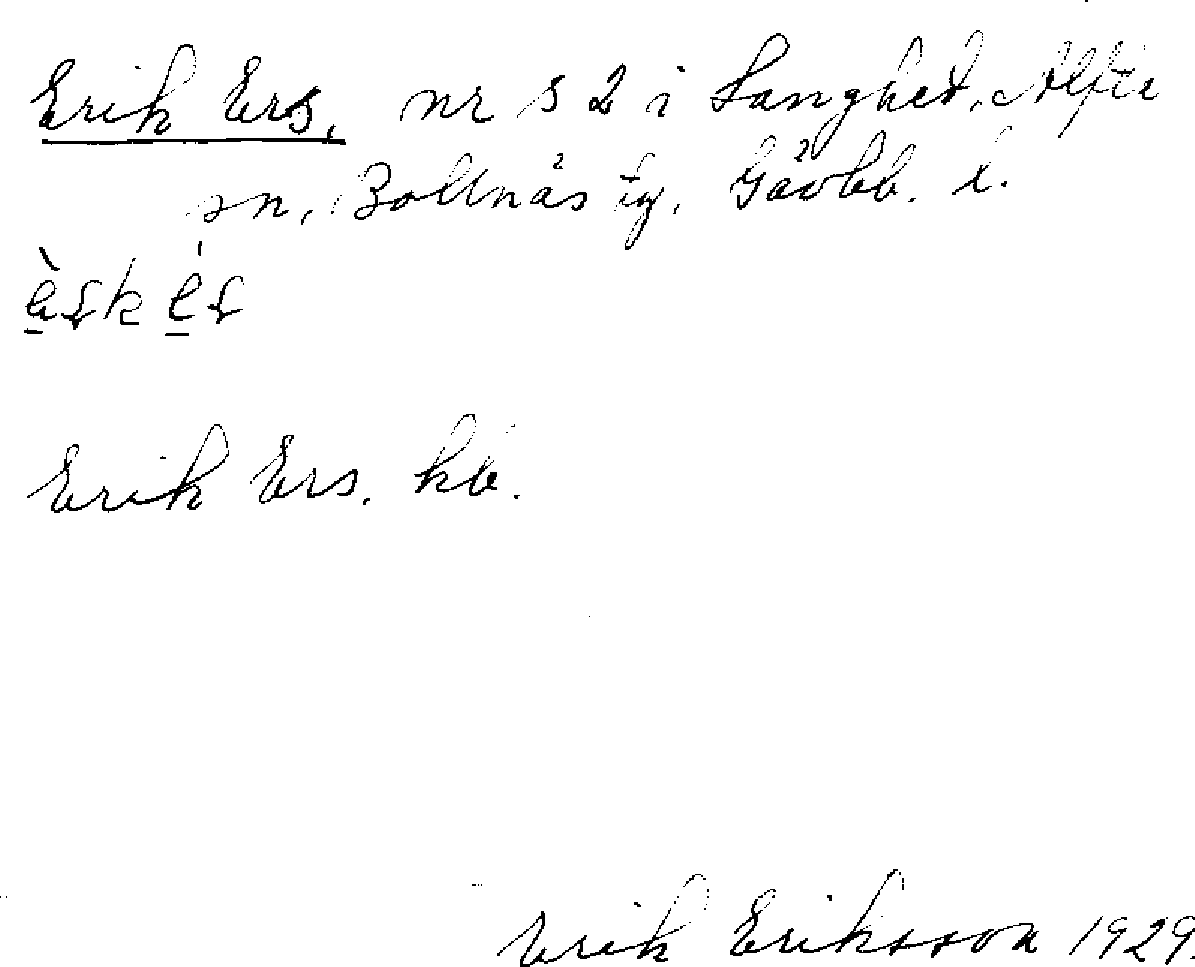 Erik Ers, nr s 2 i Långhed, Alfta
sn, Bollnäs tg, Gävleb. l.
Erik Ers. kb.
Erik Eriksson 1929.